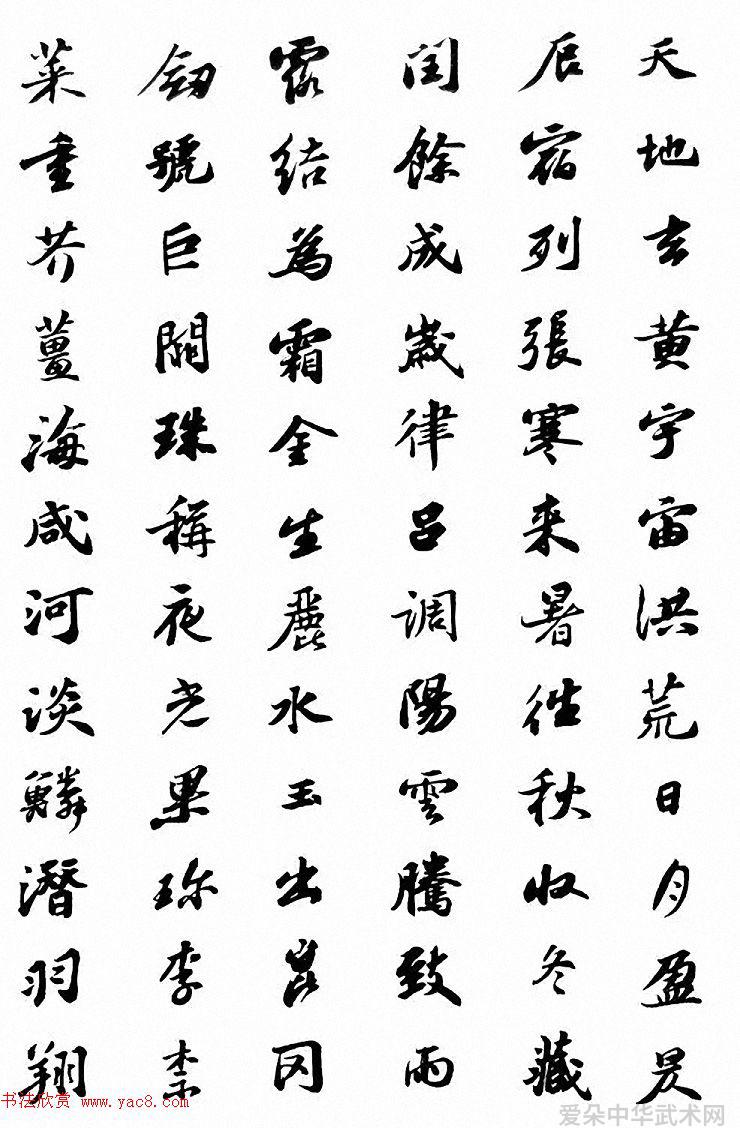 天地玄黄宇宙洪荒日月盈昃
辰宿列張寒来暑往秋收冬藏
閏餘成歲律呂調陽雲騰致雨
露結為霜金生麗水玉出崑岡
劒號巨闕珠稱夜光果珍李柰
菜重芥薑海咸河淡鱗潛羽翔
书法欣赏 www.yac8.com
爱朵中华武术网